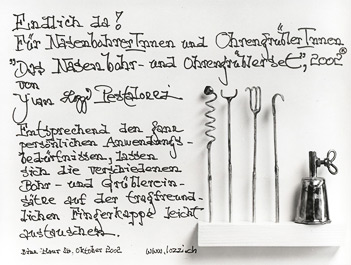 Endlich da!
Für NasenbohrerInnen und OhrengrüblerInnen
"Das Nasenbohr- und Ohrengrüblerset", 2002®
von
Yvan Lozzi Pestalozzi
Entsprechend den ganz
persönlichen Anwendungs-
bedürfnissen, lassen
sich die verschiedenen
Bohr- und Grüblerein-
sätze auf der tragfreund-
lichen Fingerkappe leicht
austauschen.
Oktober 2002
www.lozzi.ch